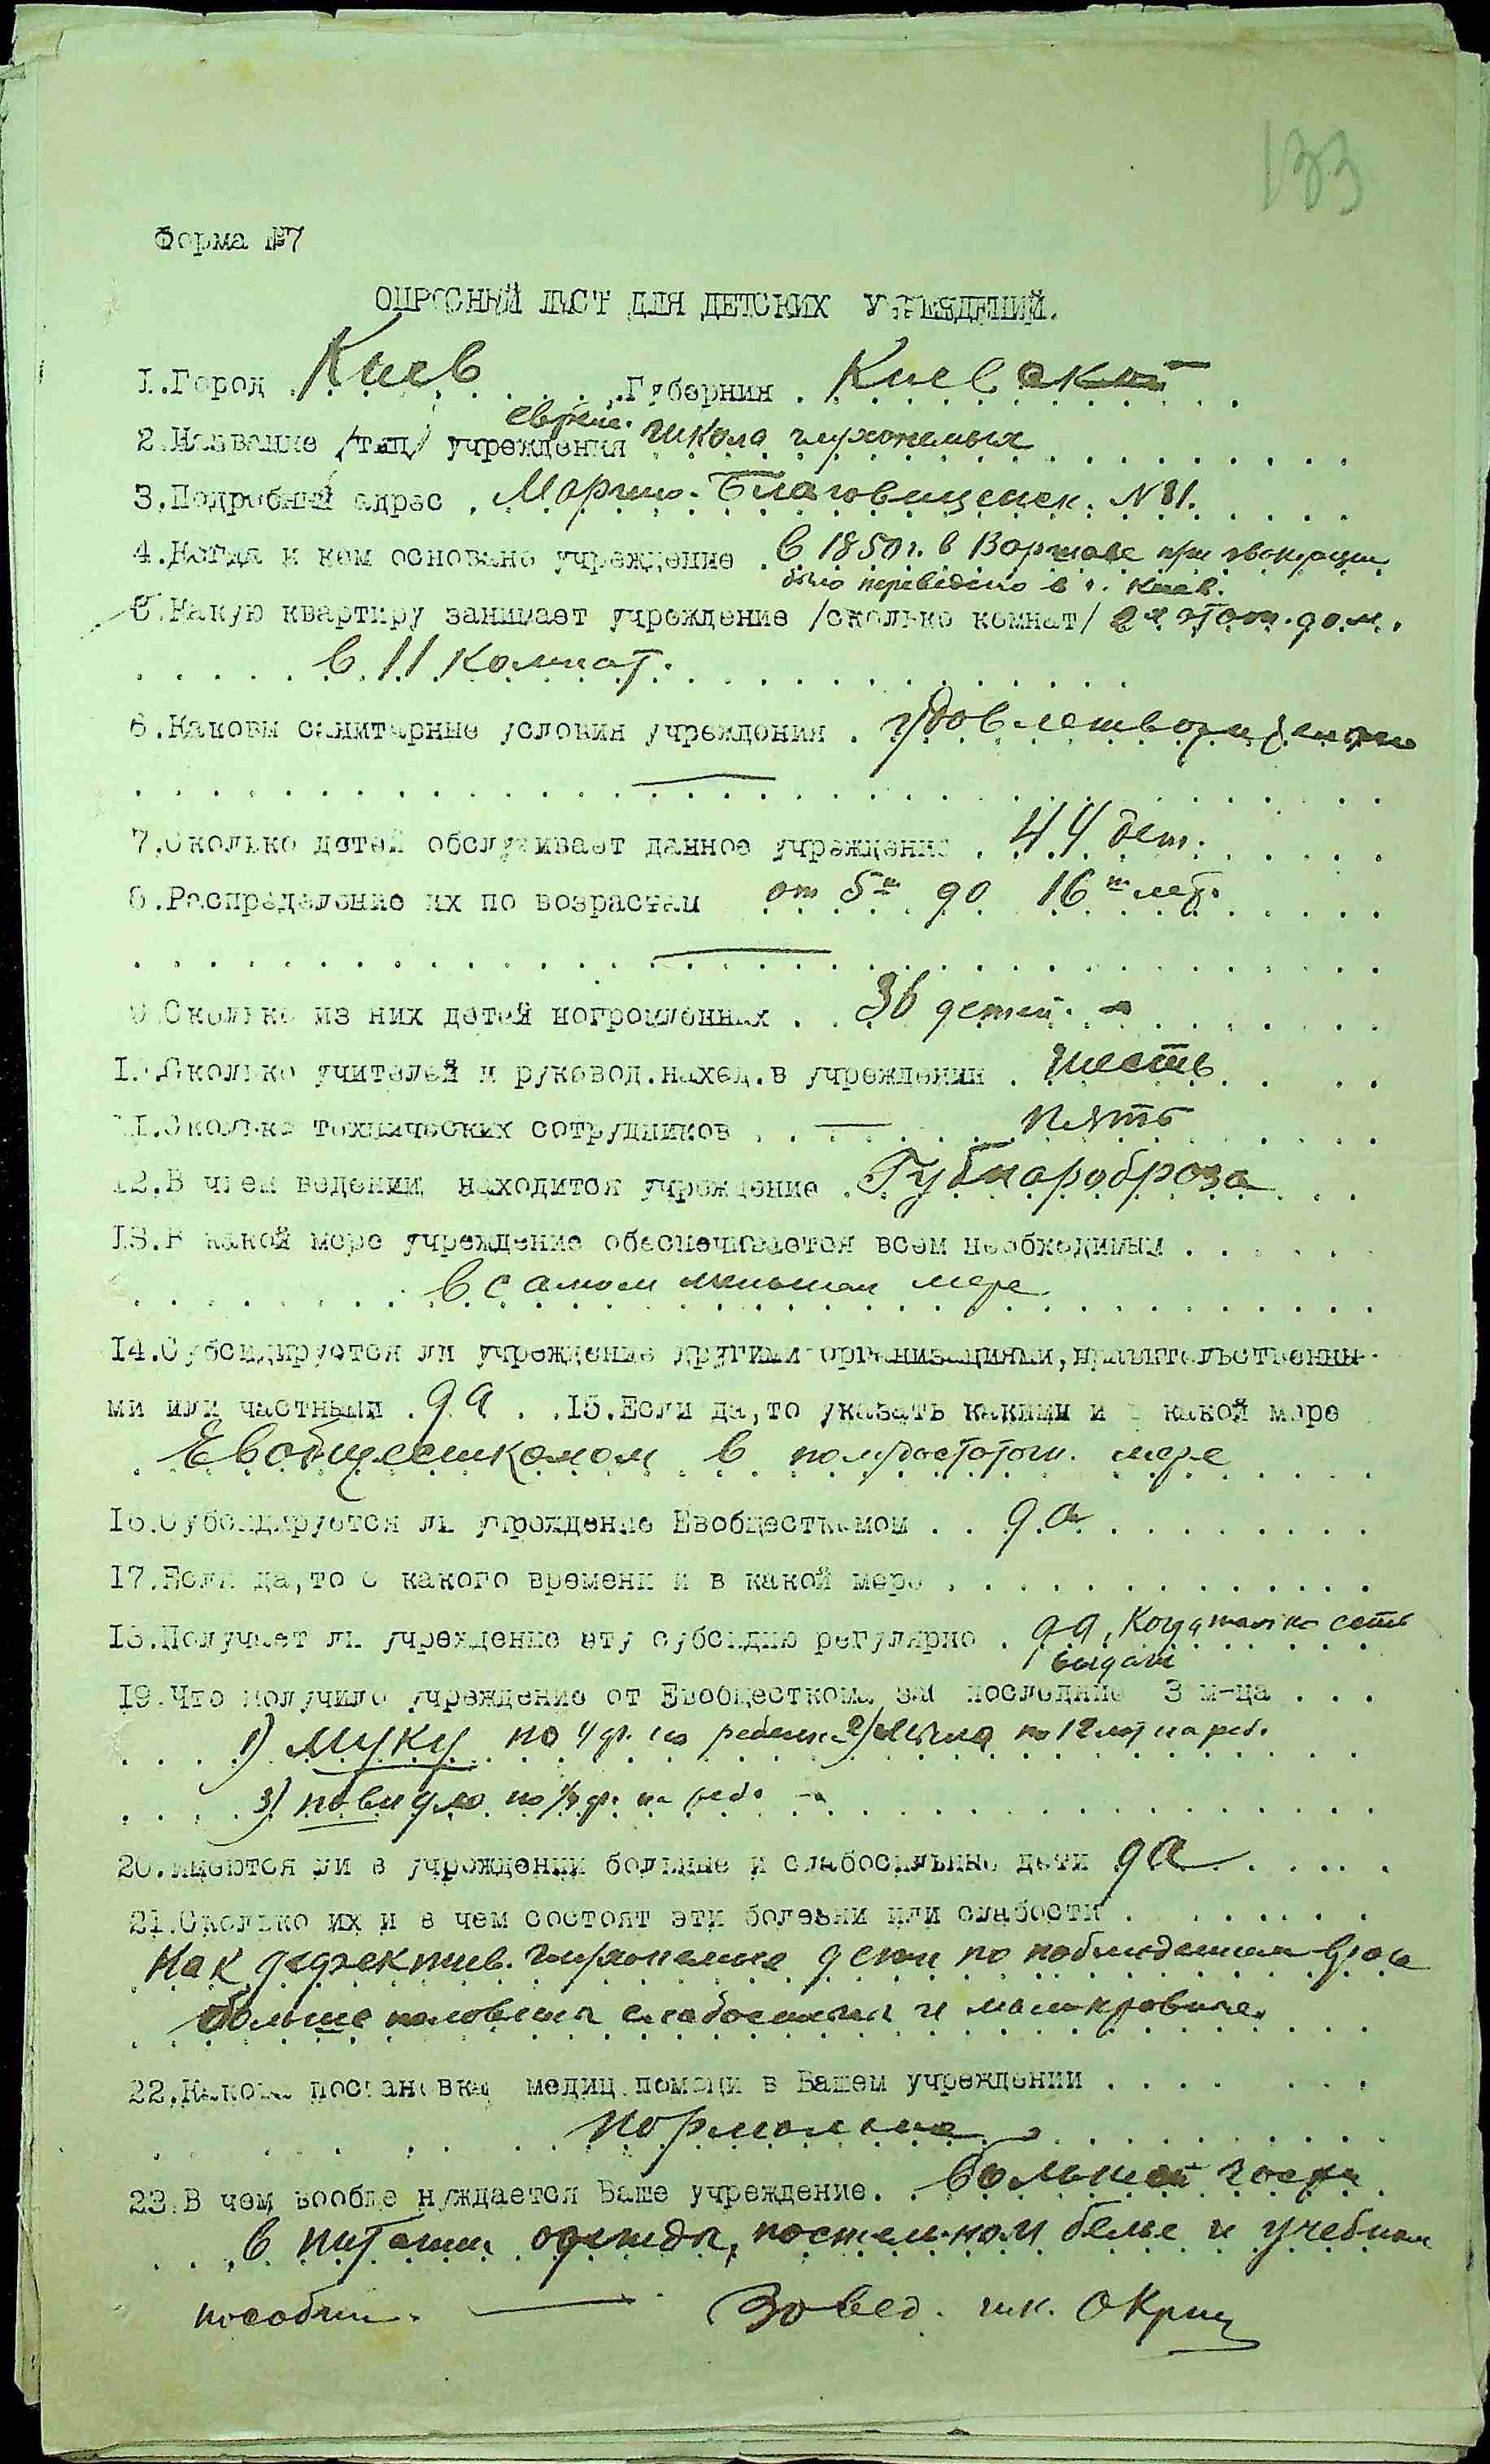 133
Форма №7
ОПРОСНЫЙ ЛИСТ ДЛЯ ДЕТСКИХ УЧРЕЖДЕНИЙ.
1.Город Киев Губернии Киевской
еврейс.
2.Название /тип/ учреждения школа глухонемых
3.Подробный адрес Марино-Благовещенск. №
4.Когда и кем основано учреждение в 1850 г. в Варшаве при эвакуации
было переведено в г. Киев.
5.Какую квартиру занимает учреждение /сколько комнат/ 2х этаж. дом.
в 11 комнат.
6.Каковы санитарные условия учреждения удовлетворительно
7.Сколько детей обслуживает данное учреждение 44 дет.
8.Распределение их по возрастам от 5 до 16 лет.
9.Сколько из них детей погромленных 36 детей.
10.Сколько учителей и руковод.наход.в учреждении шесть
11.Сколько технических сотрудников пять
12.В чьем ведении находится учреждение Губнаробраза
13.В какой мере учреждение обеспечивается всем необходимым
в самом меньшем мере
14.Субсидируется ли учреждение другими организациями,правительственны-
ми или частными да 15.Если да,то указать какими и в какой мере
Евобщесткомом в мере
16.Субсидируется ли учреждение Евобщесткомом да
17.Если да,то с какого времени и в какой мере
18.Получает ли учреждение эту субсидию регулярно да, когда только есть
выдачи
19.Что получило учреждение от Евобщесткома за последние 3 м-ца
1) муку по 4 ф. на ребенка 2) мыла по 12 на реб.
3) повидло по ф. на реб.
20.Имеются ли в учреждении больные и слабосильные дети да
21.Сколько их и в чем состоят эти болезни или слабости
Как дефектив. глухонемые дети по наблюдениям врача
больше половины слабосильны и малокровные.
22.Какова постановка медиц.помощи в Вашем учреждении
нормальна
23.В чем вообще нуждается Ваше учреждение. большей части
в питании одежды, постельном белье и учебном
пособии. Завед. шк.